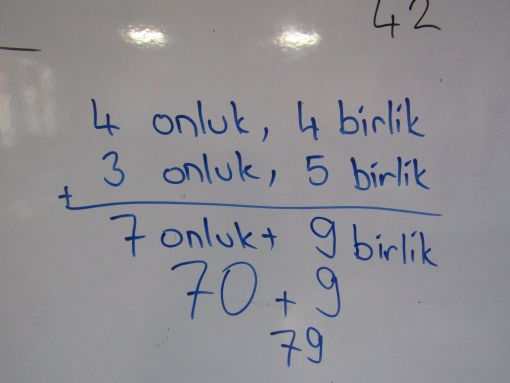 42
4 onluk, 4 birlik
3 onluk, 5 birlik
+
7 onluk + 9 birlik
70 + 9
79